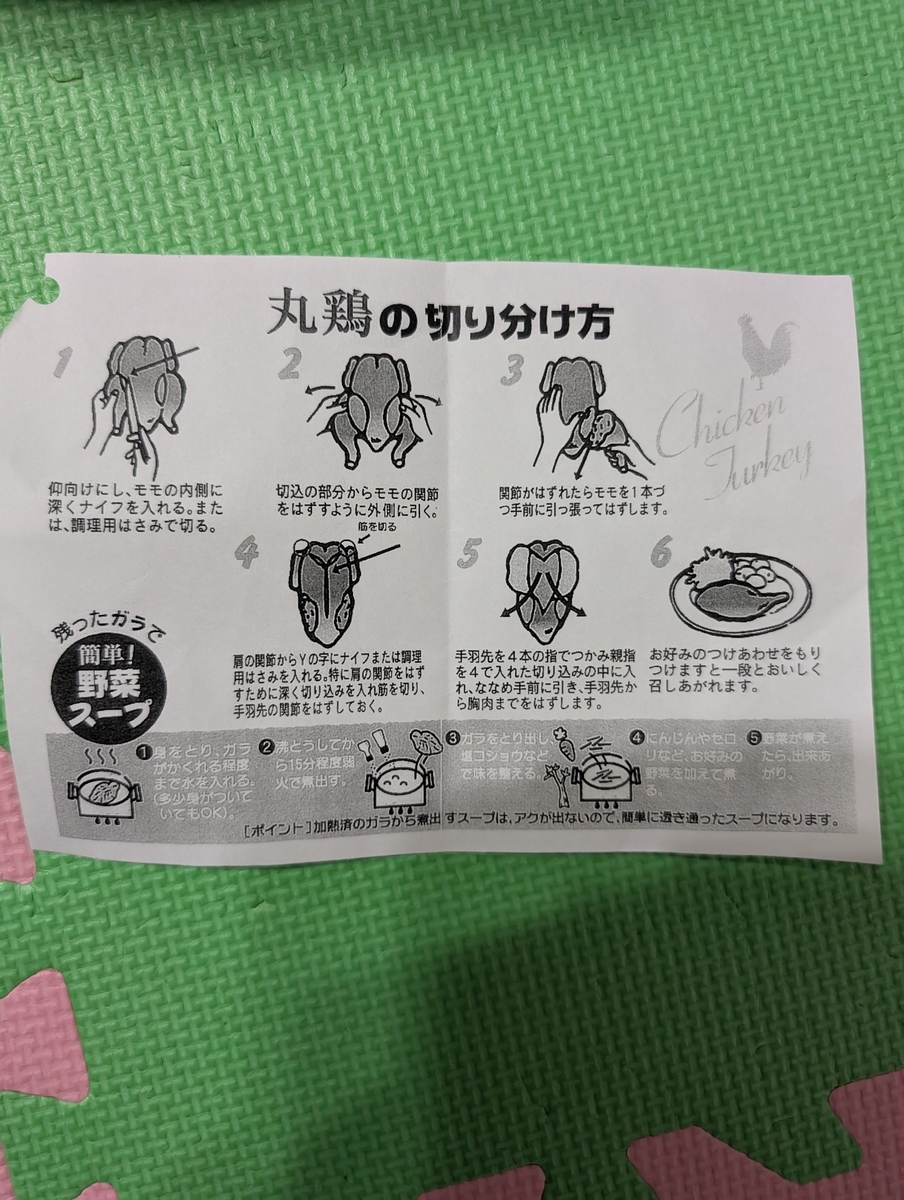 丸鶏の切り分け方
Chicken
Turkey
1
仰向けにし、モモの内側に
深くナイフを入れる。また
は、調理用はさみで切る。
2
切込の部分からモモの関節
をはずすように外側に引く。
3
関節がはずれたらモモを1本づ
つ手前に引っ張ってはずします。
4
筋を切る
肩の関節からYの字にナイフまたは調理
用はさみを入れる。特に肩の関節をはず
すために深く切り込みを入れ筋を切り、
手羽先の関節をはずしておく。
5
手羽先を4本の指でつかみ親指
を4で入れた切り込みの中に入
れ、ななめ手前に引き、手羽先か
ら胸肉までをはずします。
6
お好みのつけあわせをもり
つけますと一段とおいしく
召しあがれます。
残ったガラで
簡単!
野菜
スープ
❶身をとり、ガラ
がかくれる程度
まで水を入れる。
(多少身がついて
いてもOK)。
❷沸とうしてか
ら15分程度弱
火で煮出す。
❸ガラをとり出し
塩コショウなど
で味を整える。
❹にんじんやセロ
リなど、お好みの
野菜を加えて煮
る。
❺野菜が煮え
たら、出来あ
がり。
[ポイント]加熱済のガラから煮出すスープは、アクが出ないので、簡単に透き通ったスープになります。